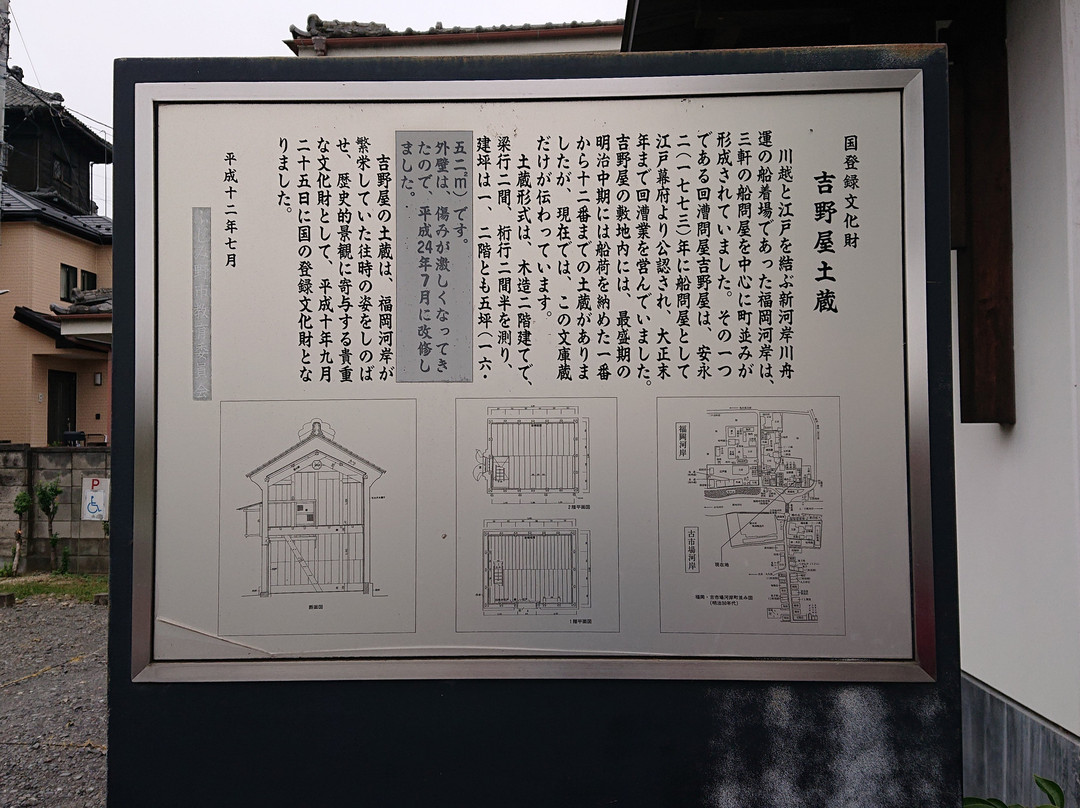 国登録文化財
吉野屋土蔵
川越と江戸を結ぶ新河岸川舟
運の船着場であった福岡河岸は、
三軒の船問屋を中心に町並みが
形成されていました。その一つ
である回漕問屋吉野屋は、安永
二(一七七三)年に船問屋として
江戸幕府より公認され、大正末
年まで回漕業を営んでいました。
吉野屋の敷地内には、最盛期の
明治中期には船荷を納めた一番
から十二番までの土蔵がありま
したが、現在では、この文庫蔵
だけが伝わっています。
土蔵形式は、木造二階建てで、
梁行二間、桁行二間半を測り、
建坪は一、二階とも五坪(一六・
五二㎡)です。
外壁は、傷みが激しくなってき
たので、平成24年7月に改修し
ました。
吉野屋の土蔵は、福岡河岸が
繁栄していた往時の姿をしのば
せ、歴史的景観に寄与する貴重
な文化財として、平成十年九月
二十五日に国の登録文化財とな
りました。
平成十二年七月
ふじみ野市教育委員会
福岡河岸
古市場河岸
現在地
福岡・古市場河岸町並み図
(明治30年代)
2階平面図
1階平面図
断面図
P